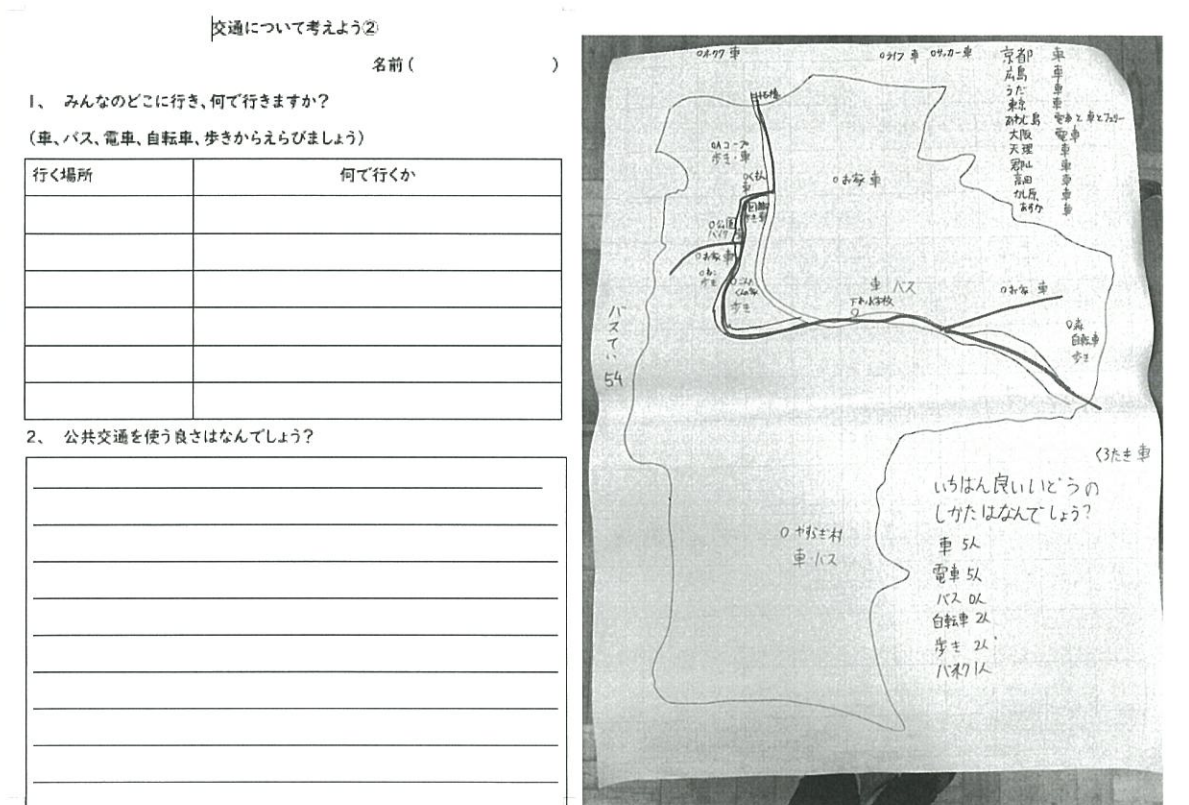 交通について考えよう②
名前(　　　　　　　　)
1、　みんなのどこに行き、何で行きますか?
(車、バス、電車、自転車、歩きからえらびましょう)
行く場所　何で行くか
2、　公共交通を使う良さはなんでしょう?
車
○ライフ 車　○サッカー 車
京都　車
広島　車
うだ　車
東京　車
あわじ島　電車と車とフェリー
大阪　電車
天理　車
郡山　車
高田　車
かし原　車
あすか　車
○Aコープ
歩き・車
○お家 車
○公園
バイク
○お家 車
歩き
歩き
車　バス
○お家 車
○森
自転車
歩き
バスてい
54
くろたき 車
○やすらぎ村
車・バス
いちばん良いいどうの
しかたはなんでしょう?
車 5人
電車 5人
バス 0人
自転車 2人
歩き 2人
1人